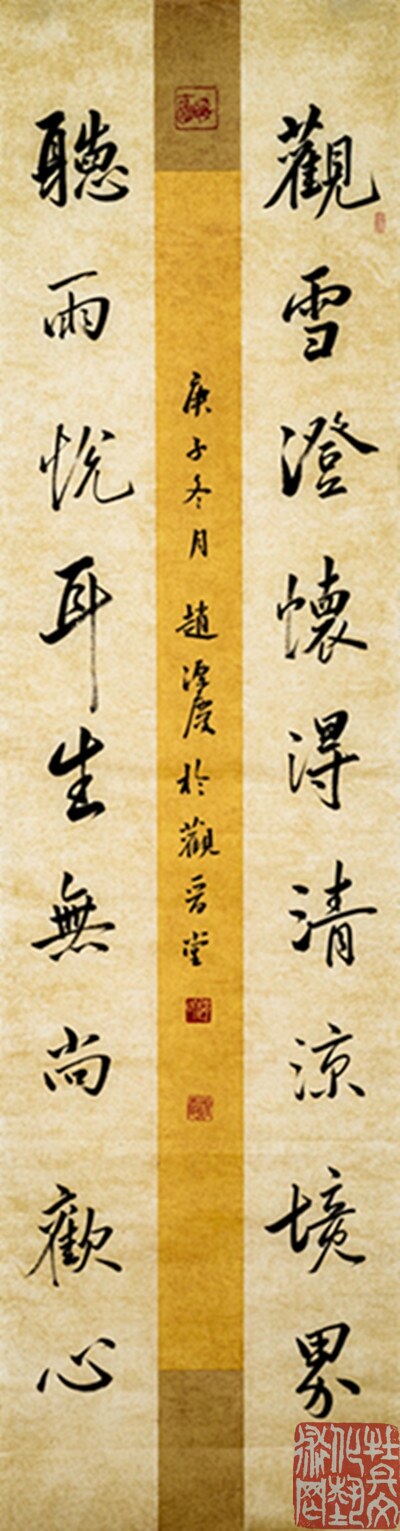 觀雪澄懷得清涼境界
庚子冬月 趙 於觀晉堂
聽雨悅耳生無尚歡心